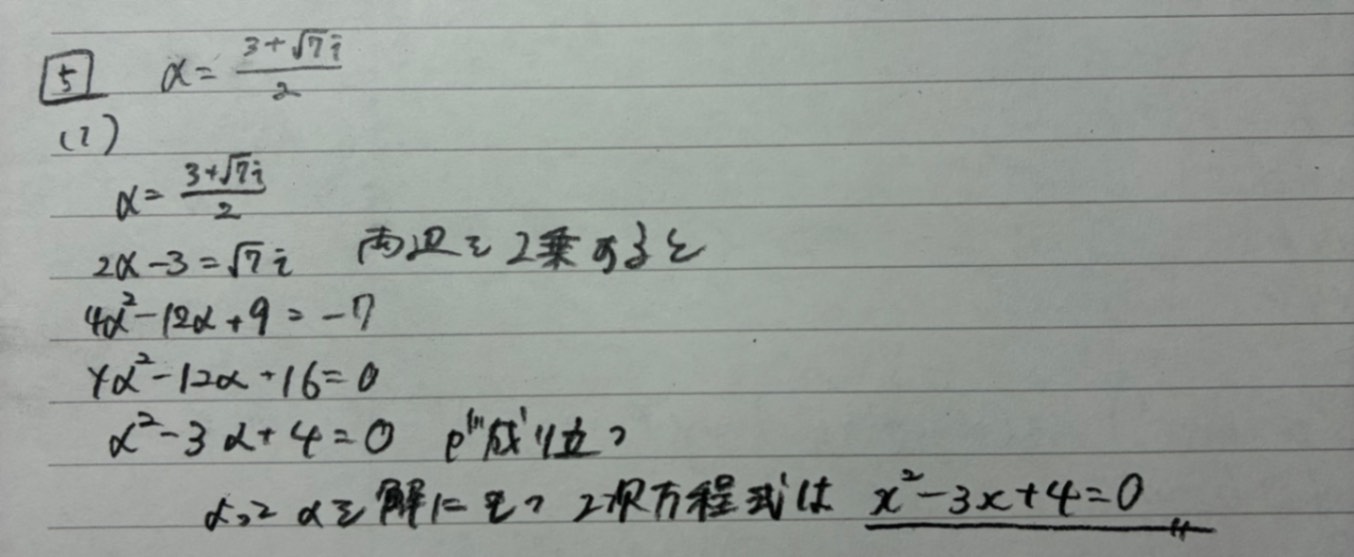 5 α = (3+√7i)/2
(1)
α = (3+√7i)/2
2α-3=√7i 両辺を2乗すると
4α²-12α+9=-7
4α²-12α+16=0
α²-3α+4=0 が成り立つ
よって αを解にもつ 2次方程式は x²-3x+4=0